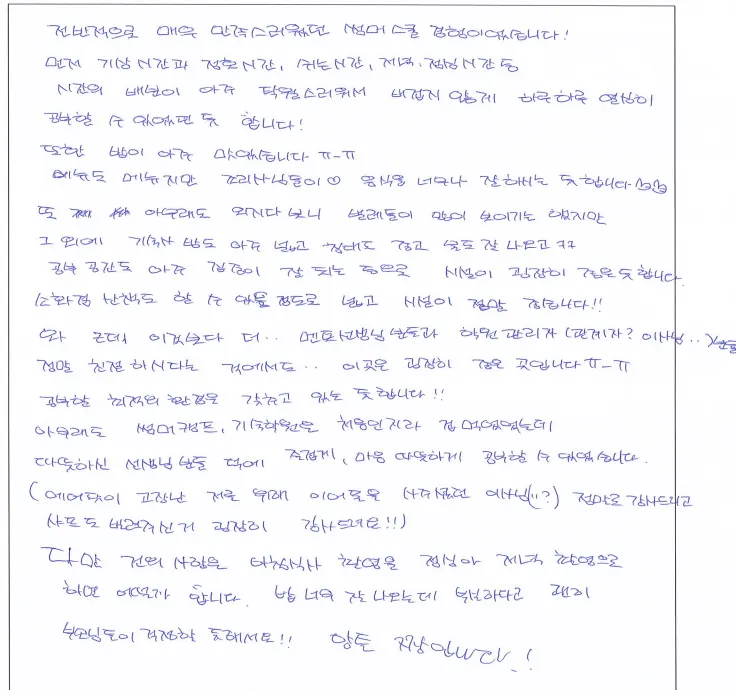 전반적으로 매우 만족스러웠던 썸머스쿨 경험이었습니다!
먼저 기상시간과 점호시간, 쉬는시간, 저녁·점심시간 등
시간의 배분이 아주 탁월스러워서 버겁지 않게 하루하루 열심히
공부할 수 있었던 듯 합니다!
또한 밥이 아주 맛있습니다 ㅠ-ㅠ
메뉴도 메뉴지만 조리사님들이 음식을 너무나 잘하시는 듯 합니다
또 아무래도 외지다 보니 벌레들이 많이 보이기는 했지만
그 외에 기숙사 방도 아주 넓고 침대도 좋고 물도 잘 나오고 ㅋㅋ
공부 공간도 아주 집중이 잘 되는 등으로 시설이 굉장히 좋은듯 합니다.
소화겸 산책도 할 수 있을 정도로 넓고 시설이 정말 좋습니다!!
와 근데 이것보다 더.. 멘토선생님분들과 학원 관리자 (관계자? 이사님..)분들
정말 친절 하시다는 것에서도.. 이곳은 굉장히 좋은 곳입니다 ㅠ-ㅠ
공부할 최적의 환경을 갖추고 있는 듯합니다!!
아무래도 썸머캠프, 기숙학원은 처음인지라 겁 먹었었는데
따뜻하신 선생님 분들 덕에 즐겁게, 마음 따뜻하게 공부할 수 있었습니다.
(에어팟이 고장난 저를 위해 이어폰을 사주셨던 이사님(!!?) 정말로 감사드리고
사모도 버려주신거 굉장히 감사드려요!!)
다만 건의 사항은 아침식사 촬영을 점심이나 저녁 촬영으로
하면 어떨까 합니다. 밥 너무 잘 나오는데 부실하다고 괜히
부모님들이 걱정할 듯해서요!! 암튼 짱입니다!